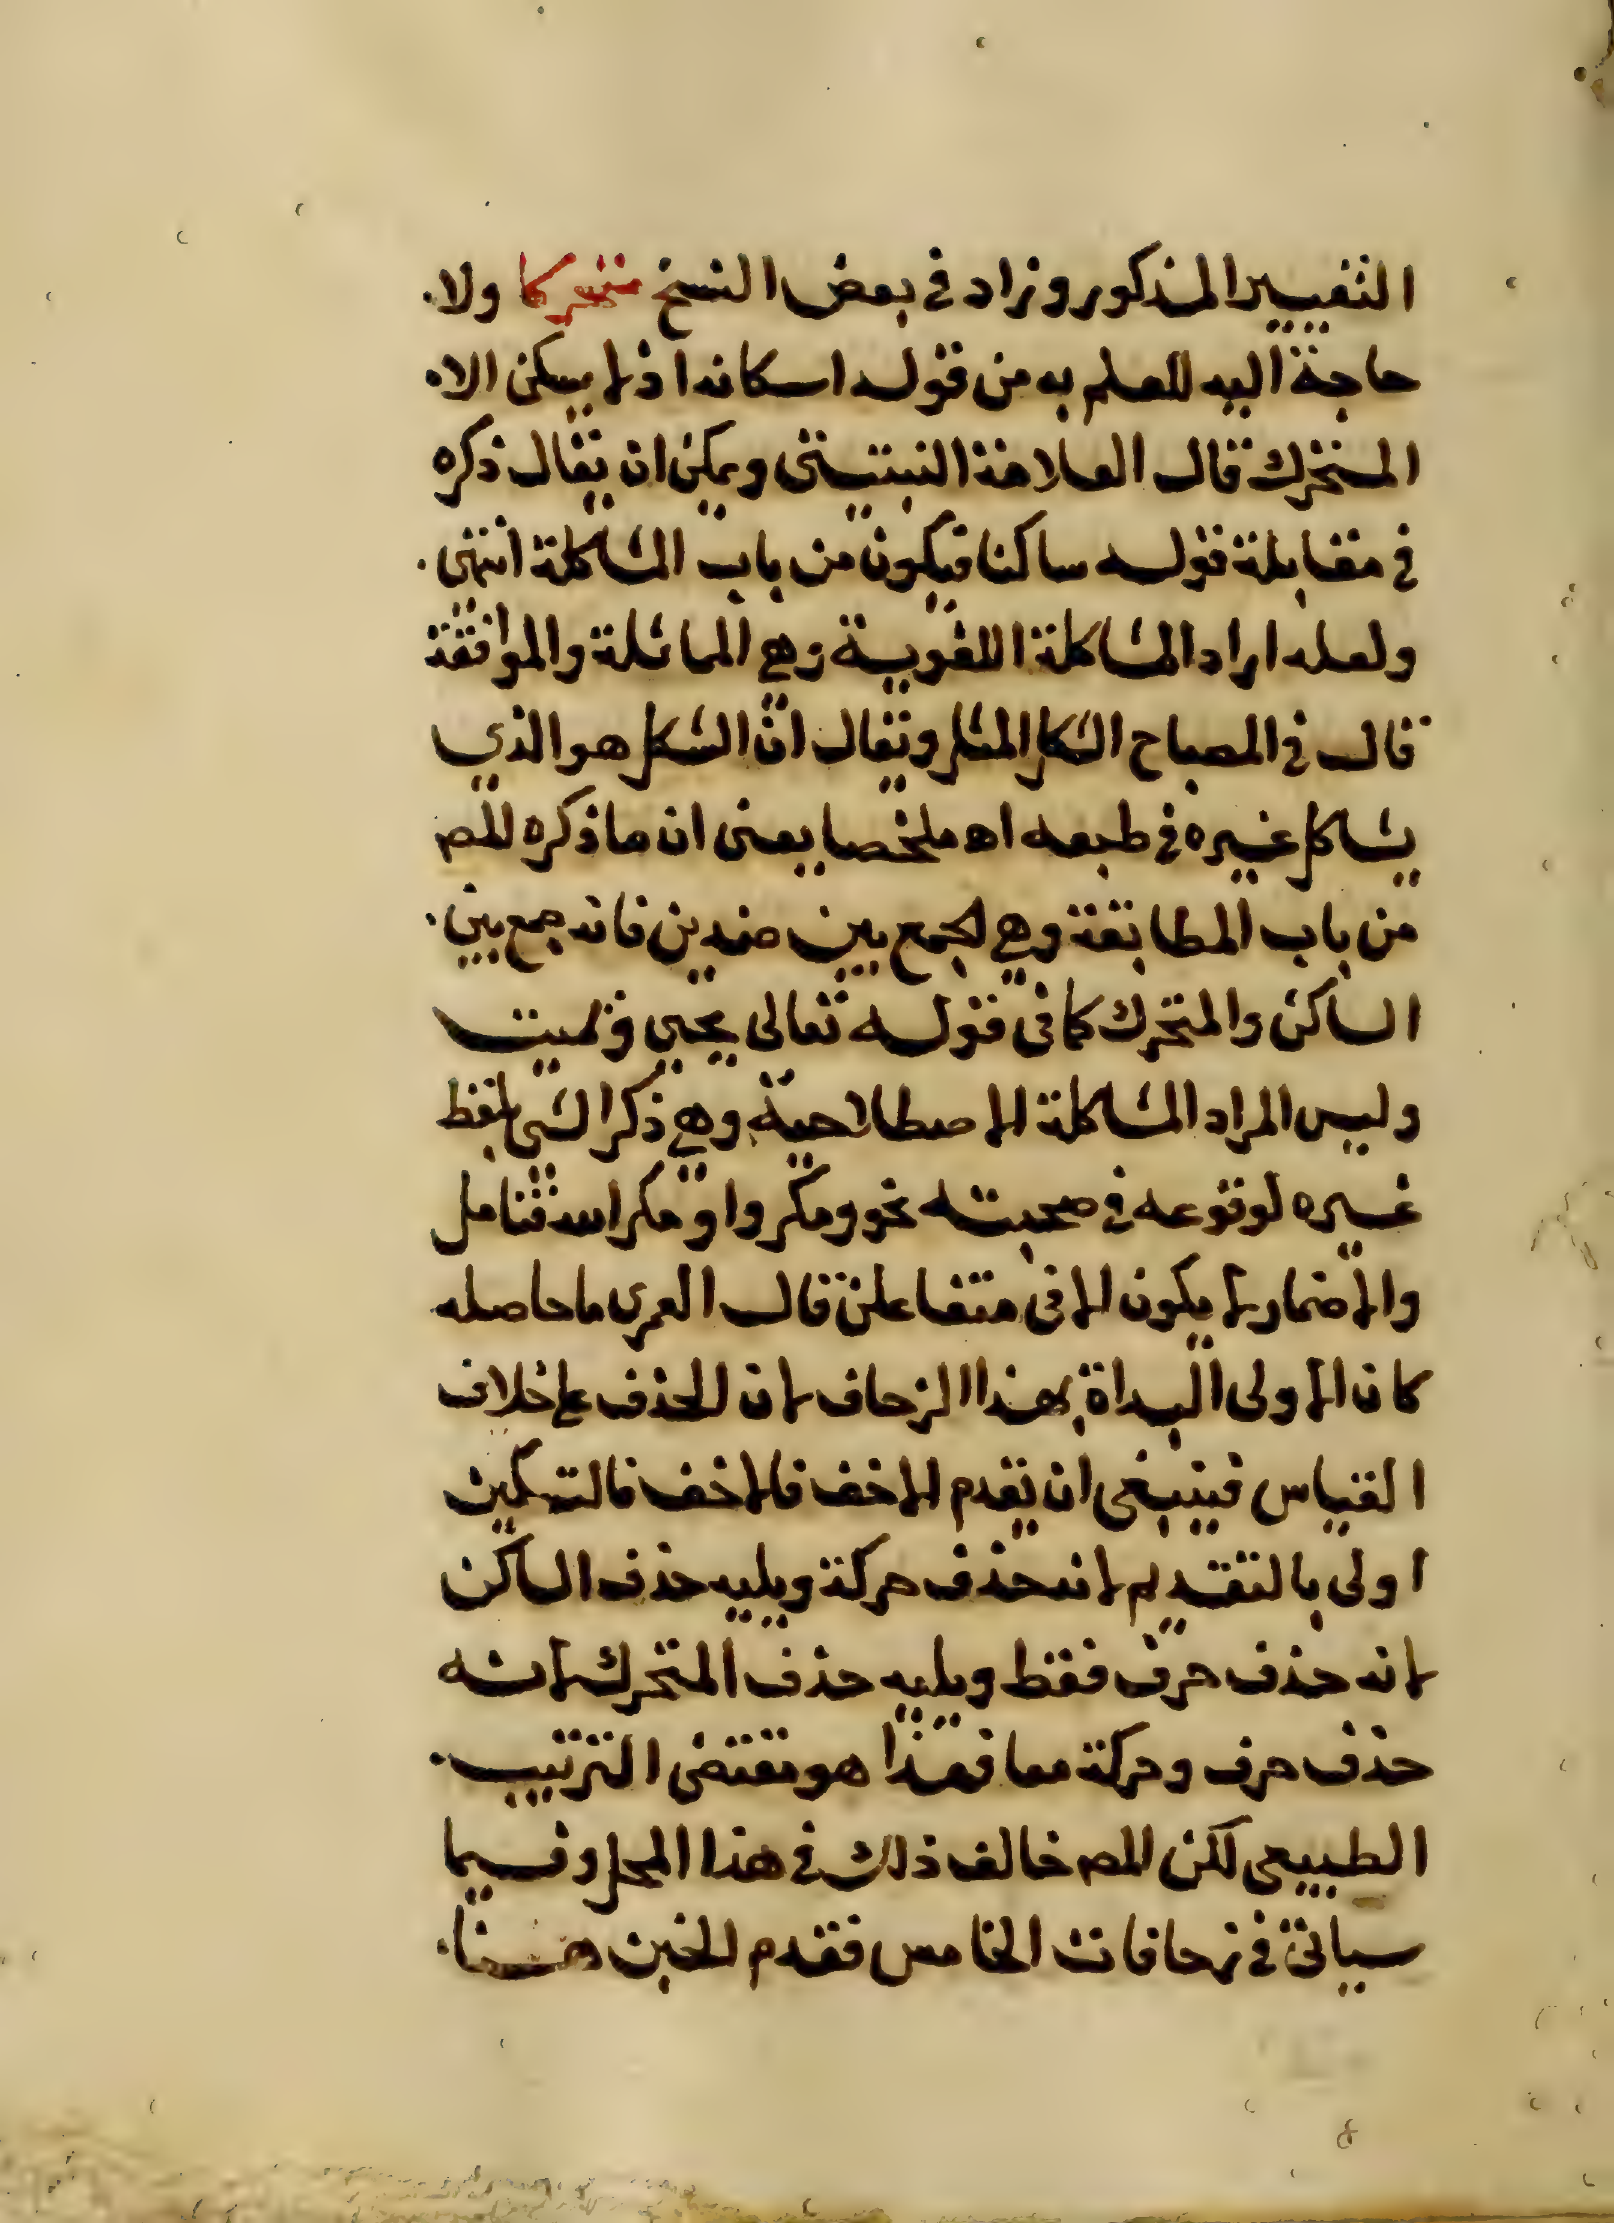 التغيير المذكور وزاد في بعض النسخ متحركا ولا
حاجة اليه للعلم به من قوله اسكانه اذ لا يسكن الا
المتحرك قال العلامة النبتيتى ويمكن ان يقال ذكره
في مقابلة قوله ساكنا فيكون من باب المشاكلة انتهى
ولعله اراد المشاكلة اللغوية وهي المماثلة والموافقة
قال في المصباح الشكل المثل ويقال ان الشكل هو الذي
يشاكل غيره في طبعه اه ملخصا يعنى ان ما ذكره المص
من باب المطابقة وهي الجمع بين ضدين فانه جمع بين
الساكن والمتحرك كما فى قوله تعالى يحيى ويميت
وليس المراد المشاكلة الاصطلاحية وهي ذكر الشى بلفظ
غيره لوقوعه في صحبته نحو ومكروا ومكر الله فتامل
والاضمار لا يكون الا فى متفاعلن قال الغمرى ما حاصله
كان الاولى البداة بهذا الزحاف لان الحذف على خلاف
القياس فينبغى ان يقدم الاخف فالاخف فالتسكين
اولى بالتقديم لانه حذف حركة ويليه حذف الساكن
لانه حذف حرف فقط ويليه حذف المتحرك لانه
حذف حرف وحركة معا فهذا هو مقتضى الترتيب
الطبيعى لكن المص خالف ذلك في هذا المحل وفيما
سياتى في زحافات الخامس فقدم الخبن هنا